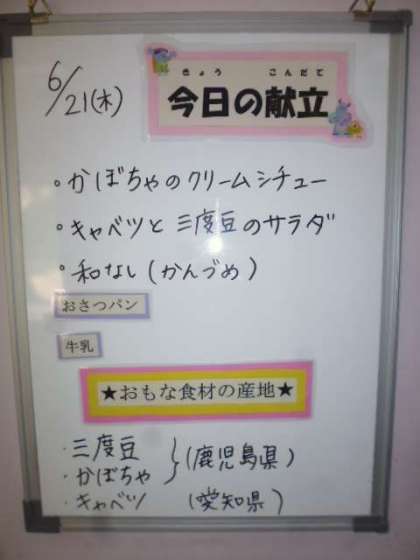 6/21(木)
きょう こんだて
今日の献立
・かぼちゃのクリームシチュー
・キャベツと三度豆のサラダ
・和なし(かんづめ)
おさつパン
牛乳
★おもな食材の産地★
・三度豆
・かぼちゃ } (鹿児島県)
・キャベツ (愛知県)